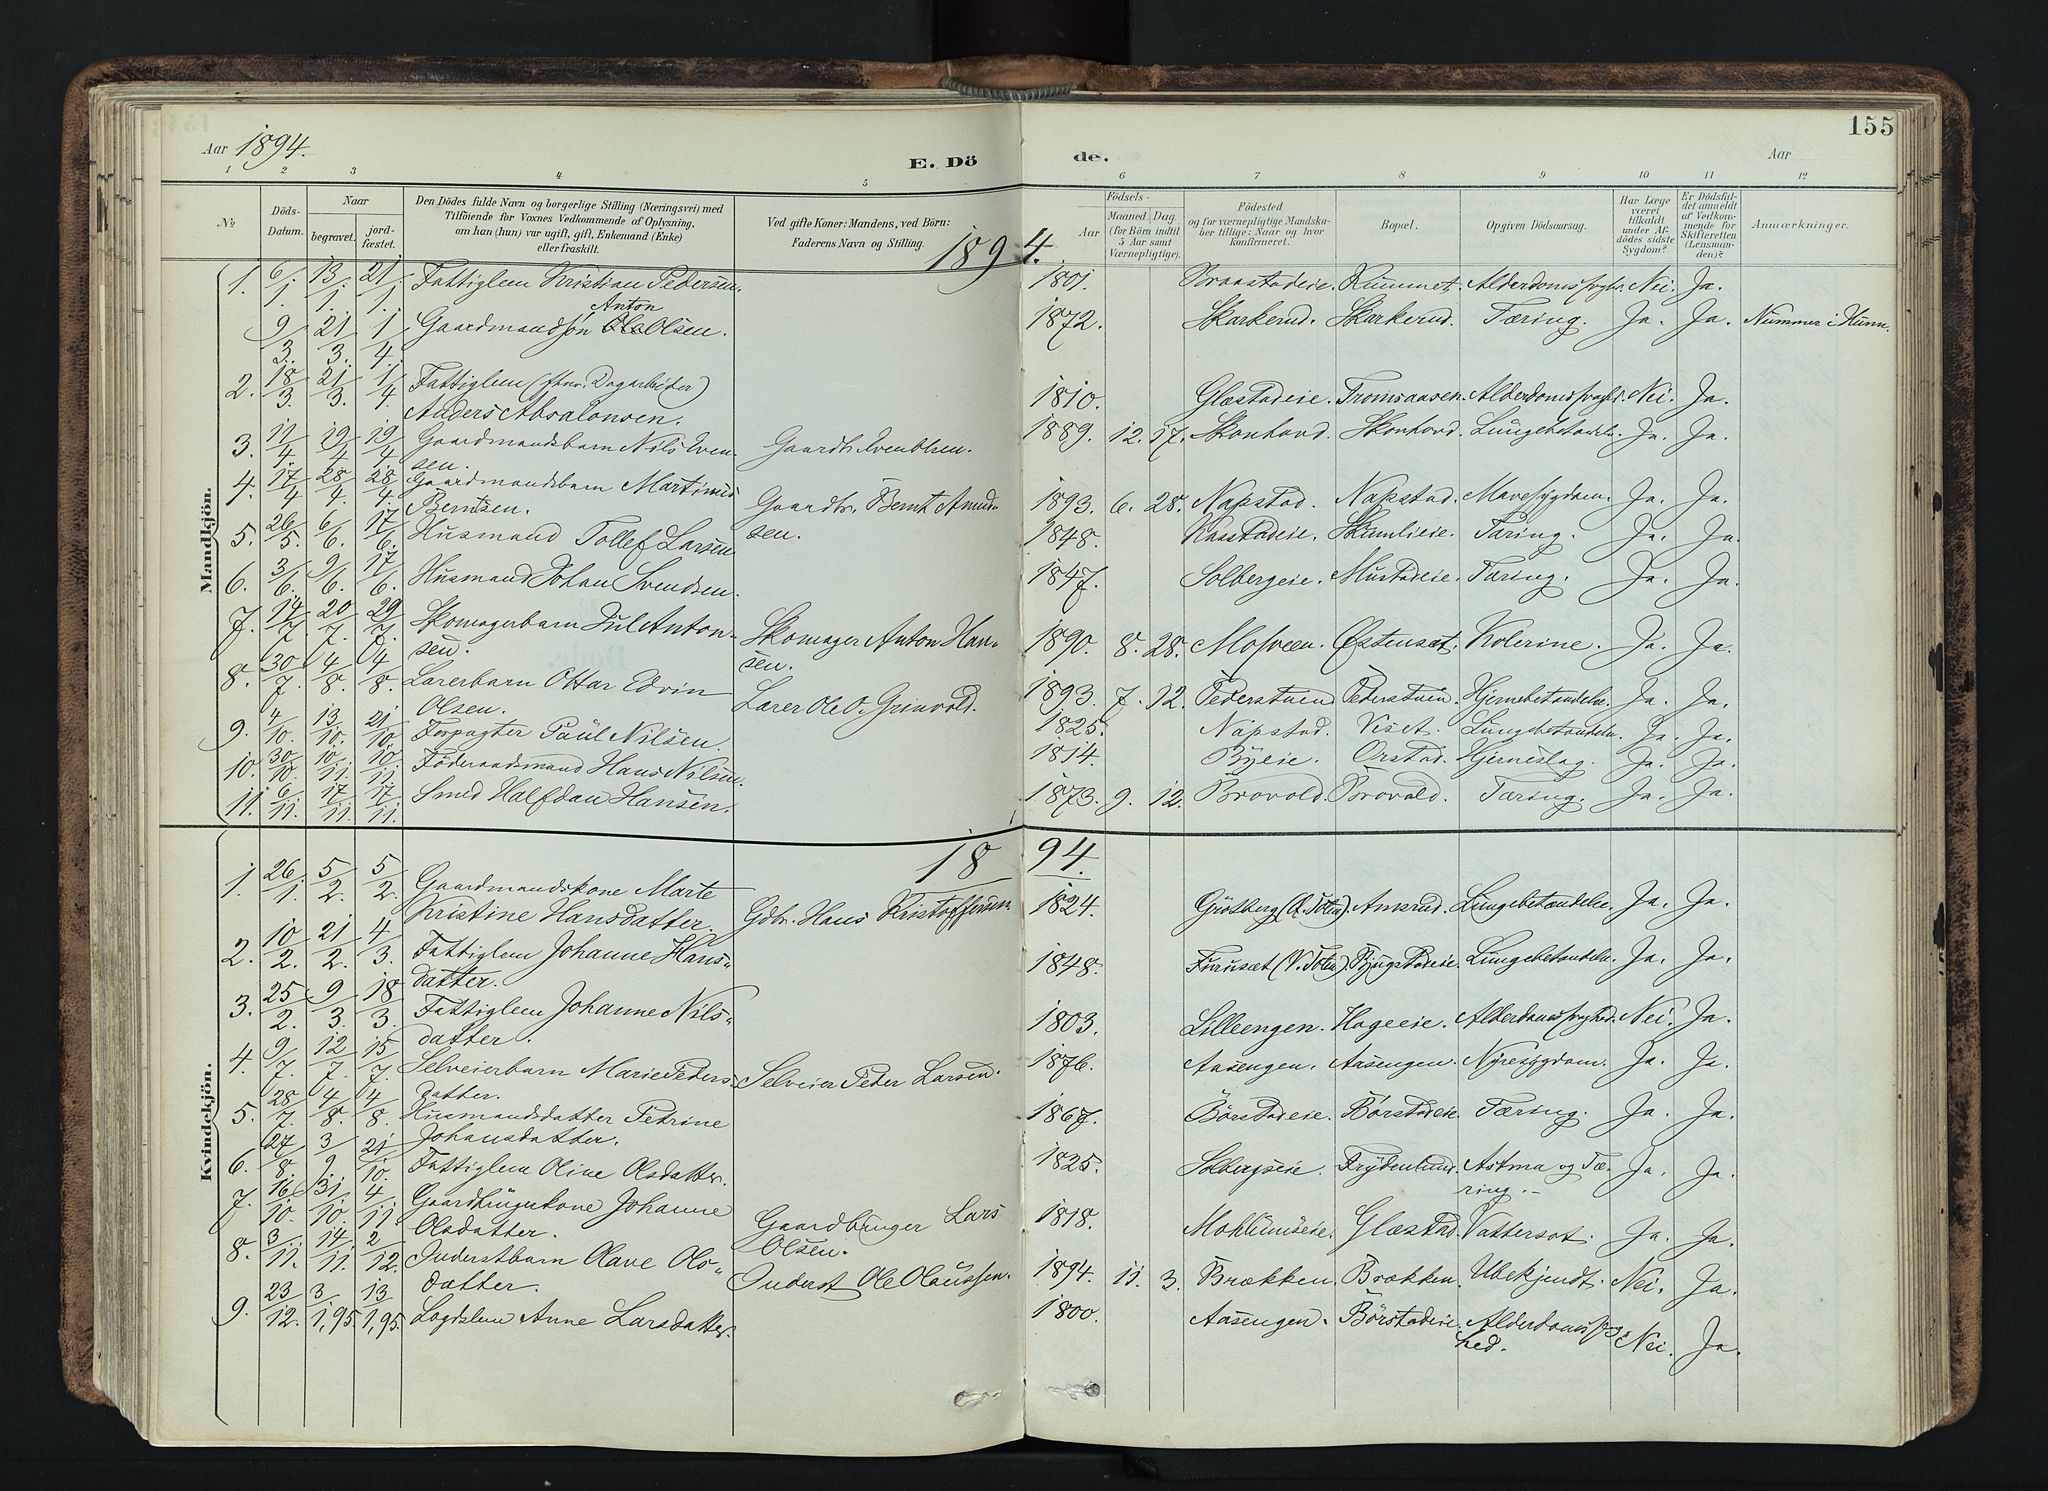 155
Aar 1894.
E. Döde.
Aar
1 2 3 4 5 6 7 8 9 10 11 12
No.
Döds-Datum.
Naar
begravet.
jord-fæstet.
Den Dödes fulde Navn og borgerlige Stilling (Næringsvei) med
Tilföiende for Voxnes Vedkommende af Oplysning,
om han (hun) var ugift, gift, Enkemand (Enke)
eller fraskilt.
Ved gifte Koner: Mandens, ved Börn:
Faderens Navn og Stilling.
Födsels-
Aar
Maaned (for Börn indtil 5 Aar samt Værnepligtige).
Dag
Födested
og for værnepligtige Mandska-
ber tillige: Naar og hvor
konfirmeret.
Bopæl.
Opgiven Dödsaarsag.
Har Læge været tilkaldt under Af-dödes sidste Sygdom?
Er Dödsfal-det anmeldt af Vedkom-mende for Skifteretten (Lensman-den)?
Anmærkninger.
1894.
Mandkjön.
1. 6/1. 13/1. 21/1. Fattiglem Kristian Pedersen. 1801. Braastadeie. Rummet. Nei. Ja.
Anton
9/3. 21/3. 1/4. Gaardmandssøn Olsen. 1872. Skarkerud. Skarkerud. Tæring. Ja. Ja. Nummer i Hunn.
2. 18/3. 21/3. 1/4 Fattiglem (Dagarbeider)
Anders Absalonsen. 1810. Glæstadeie. Tromsaasen. Nei. Ja.
3. 11/4. 19/4 19/4. Gaardmandsbarn Nils Even-
sen. 1889. 12. 17. Skonhovd. Skonhovd. Lungebetændelse. Ja. Ja.
4. 17/4 28/4. 28/4. Gaardmandsbarn Martinus
Berntsen. Gaardbr. Bernt Amund-
sen. 1893. 6. 28. Napstad. Napstad. Mavesygdom. Ja. Ja.
5. 26/5. 6/6. 17/6. Husmand Tollef Larsen 1848. Skumlieie. Tæring. Ja. Ja.
6. 3/6. 9/6. 17/6. Husmand Johan Svendsen. 1847. Solbergeie. Mustadeie. Tæring. Ja. Ja.
7. 14/7 20/7. 29/7. Skomagerbarn Jul Anton-
sen. Skomager Anton Han-
sen. 1890. 8. 28. Mosveen. Østenset. Kolerine. Ja. Ja.
8. 30/7. 4/8. 4/8. Lærerbarn Ottar Edvin
Olsen. Lærer Ole O. Grinvold. 1893. 7. 12. Pederstuen Pederstuen. Hjernebetændelse. Ja. Ja.
9. 4/10. 13/10. 21/10. Forpagter Paul Nilsen. 1825. Napstad. Viset. Lungebetændelse. Ja. Ja.
10. 30/10. 10/11. 10/11. Föderaadsmand Hans Nilsen. 1814. Byeie. Orstad. Hjerneslag. Ja. Ja.
11. 6/11. 17/11. 17/11. Smed Halfdan Hansen. 1873. 9. 12. Brovold. Brovold. Tæring. Ja. Ja.
1894.
Kvindekjön.
1. 26/1. 5/2. 5/2. Gaardmandskone Marte
Kristine Hansdatter. Gdbr. Hans Kristoffersen 1824. Amrud. Lungebetændelse. Ja. Ja.
2. 10/2. 21/2. 4/3. Fattiglem Johanne Hans-
datter. 1848. Furuset (V. Toten). Bjugstadeie. Lungebetændelse. Ja. Ja.
3. 25/2. 9/3. 18/3. Fattiglem Johanne Nils-
datter. 1803. Lilleengen. Hageeie. Alderdomssvaghed. Nei. Ja.
4. 9/7. 12/7. 15/7. Selveierbarn Marie Peders-
datter. Selveier Peder Larsen. 1876. Aasengen. Aasengen. Nyresygdom. Ja. Ja.
5. 28/7. 4/8. 4/8. Husmandsdatter Petrine
Johansdatter. 1867. Börstadeie. Börstadeie. Tæring. Ja. Ja.
6. 27/8. 3/9. 21/10. Fattiglem Oline Olsdatter. 1825. Solbergseie. Frydenlund. Astma og Tæ-
ring. Ja. Ja.
7. 16/10. 31/10. 4/11. Gaardbrugerkone Johanne
Olsdatter. Gaardbruger Lars
Olsen. 1818. Glæstad. Vattersot. Ja. Ja.
8. 3/11. 14/11. 2/12. Inderstbarn Olave Ols-
datter. Inderst Ole Olaussen. 1894. 11. 3. Brækken. Brækken. Ubekjendt. Nei. Ja.
9. 23/12. 3/1,95. 13/1,95. Lægdslem Anne Larsdatter. 1800. Aasengen. Börstadeie.
hed. Nei. Ja.